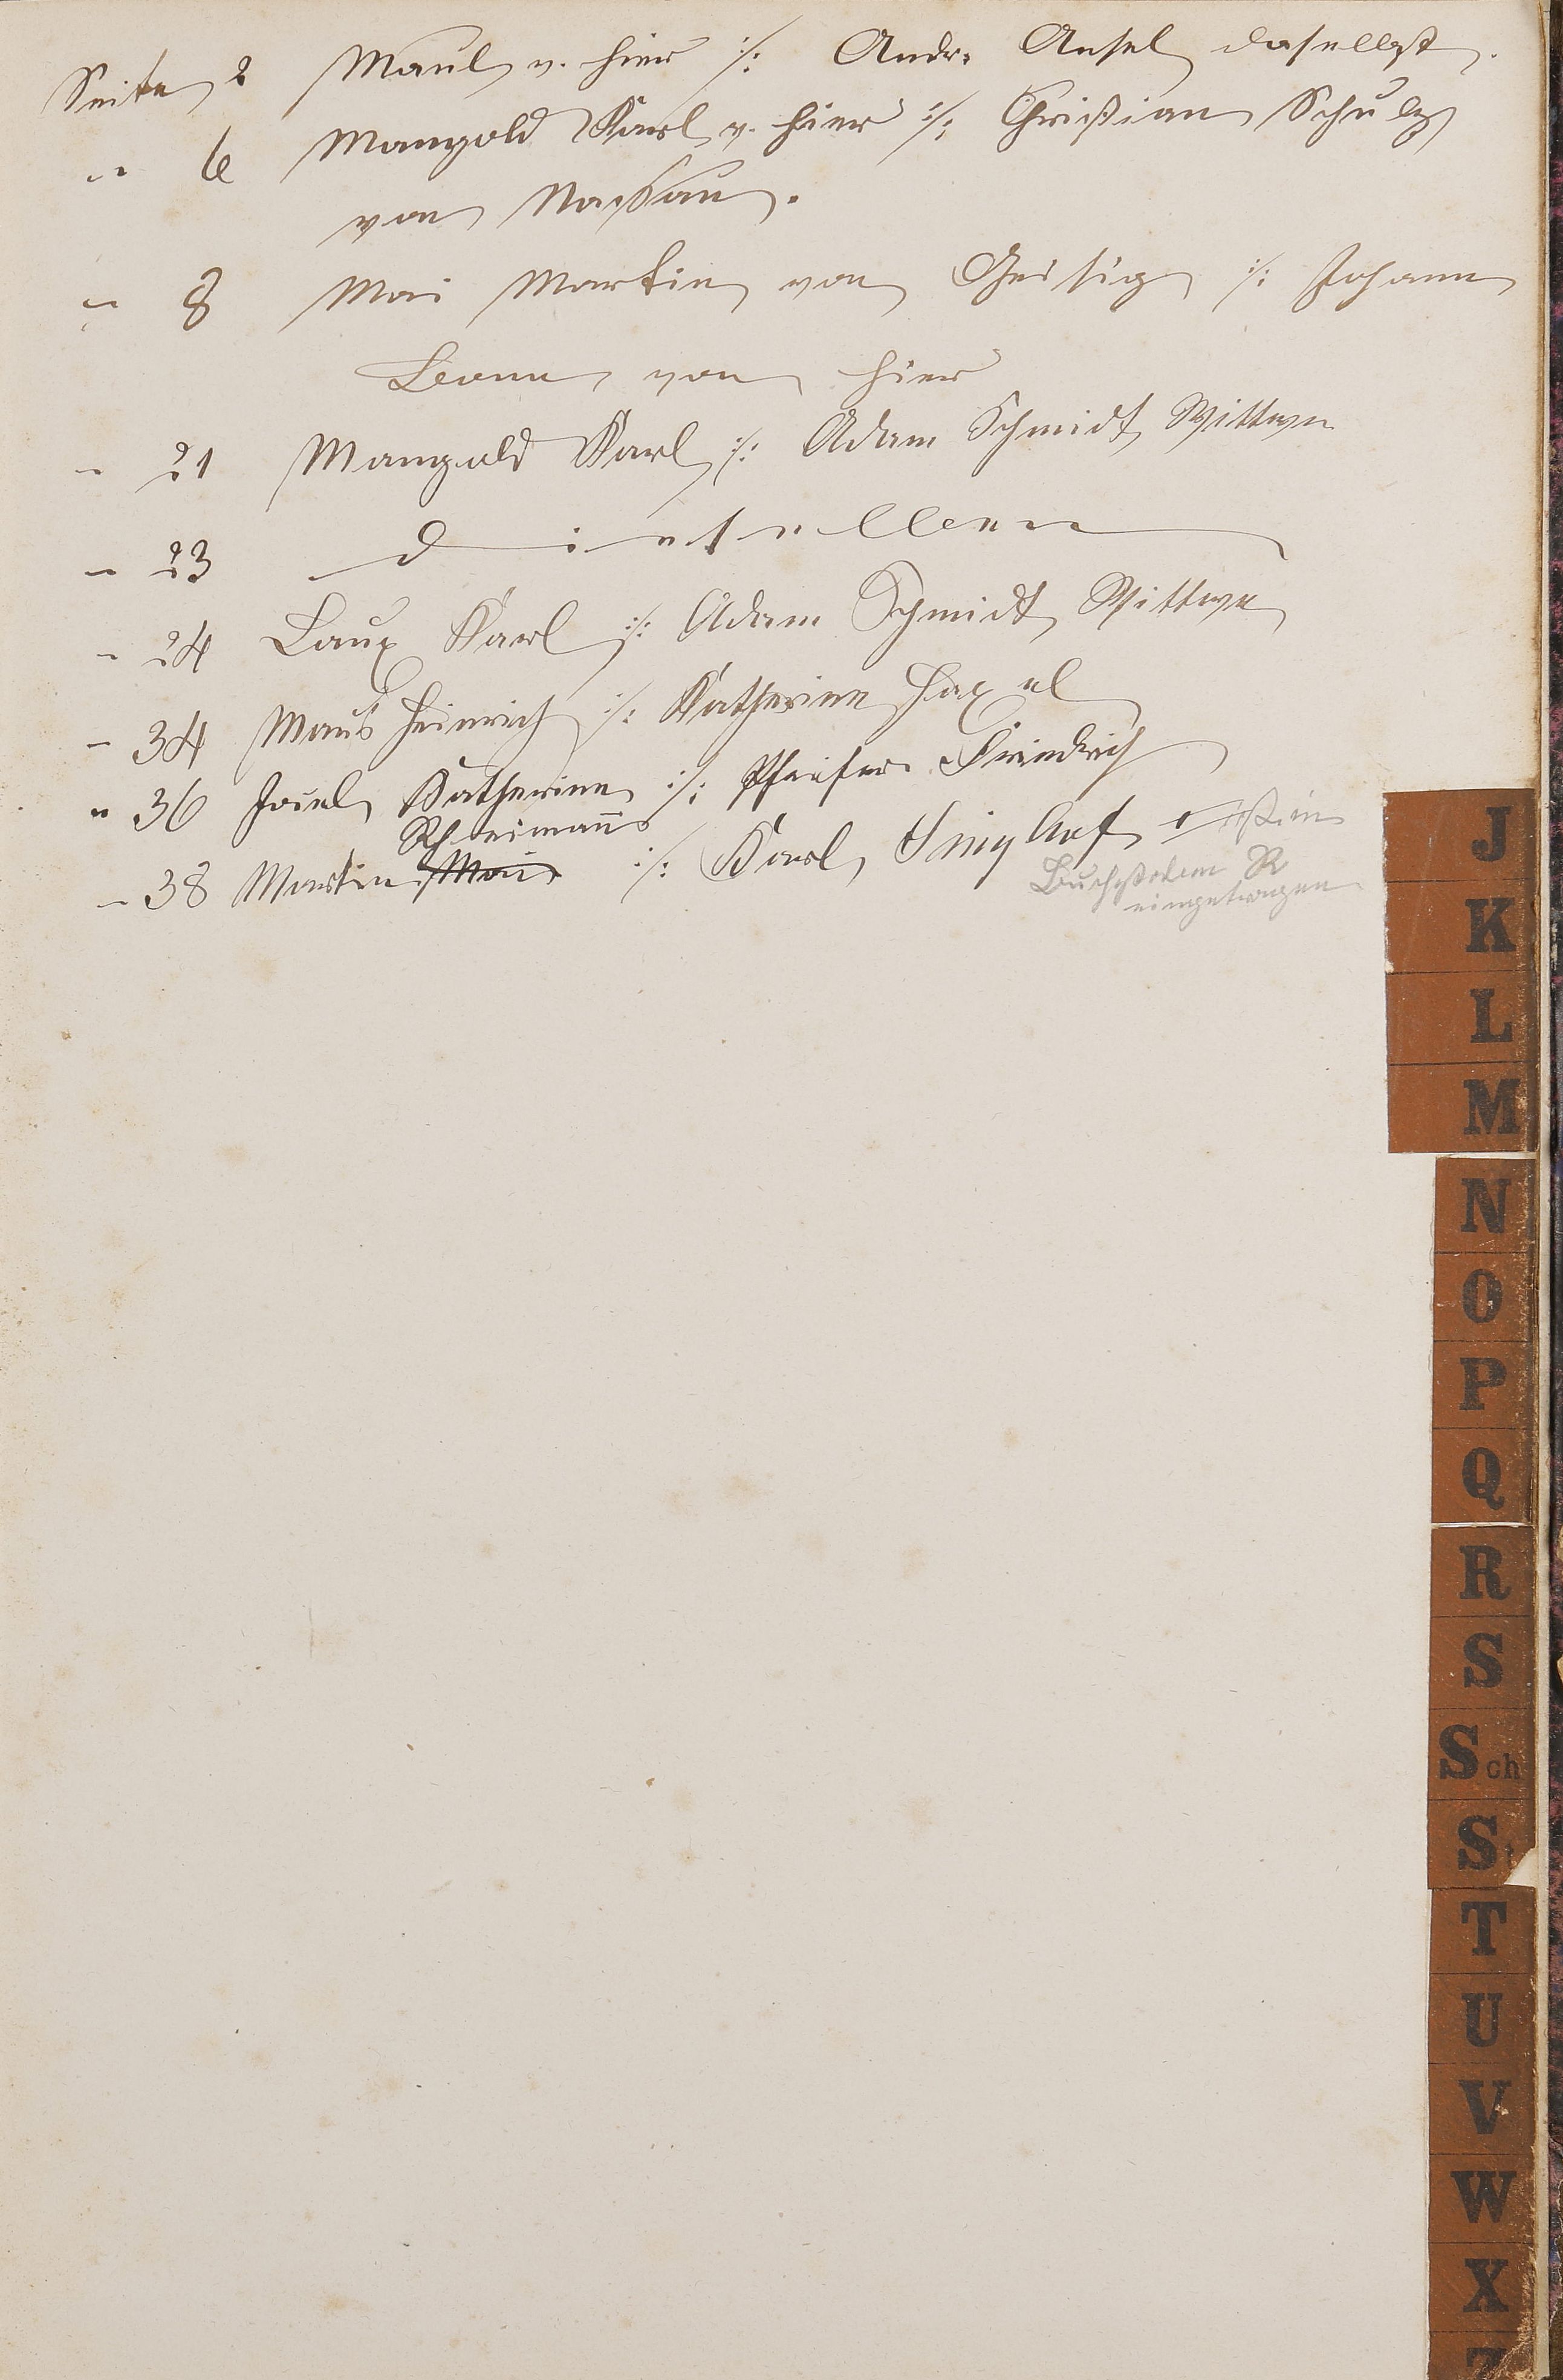 Seite 2 Maul v. hier ·/: Andr. Ansel daselbst.
" 6 Mangold Karl v. hier ·/: Christian Schulz
von Nassau.
" 8 Mai Martin von Geisig ·/: Johann
von hier
" 21 Mangold Karl ·/: Adam Schmidt Wittwe
" 23 dieselben
" 24 Laux Karl ·/: Adam Schmidt Wittwe
" 34 Maus Heinrich ·/: Katharine Haxel
" 36 Katharine ·/: Pfeifer Friedrich
Rheimanns
" 38 Martin Mai ·/: Karl
Buchstaben R
eingetragen
J
K
L
M
N
O
P
Q
R
S
Sch
St
T
U
V
W
X
Z